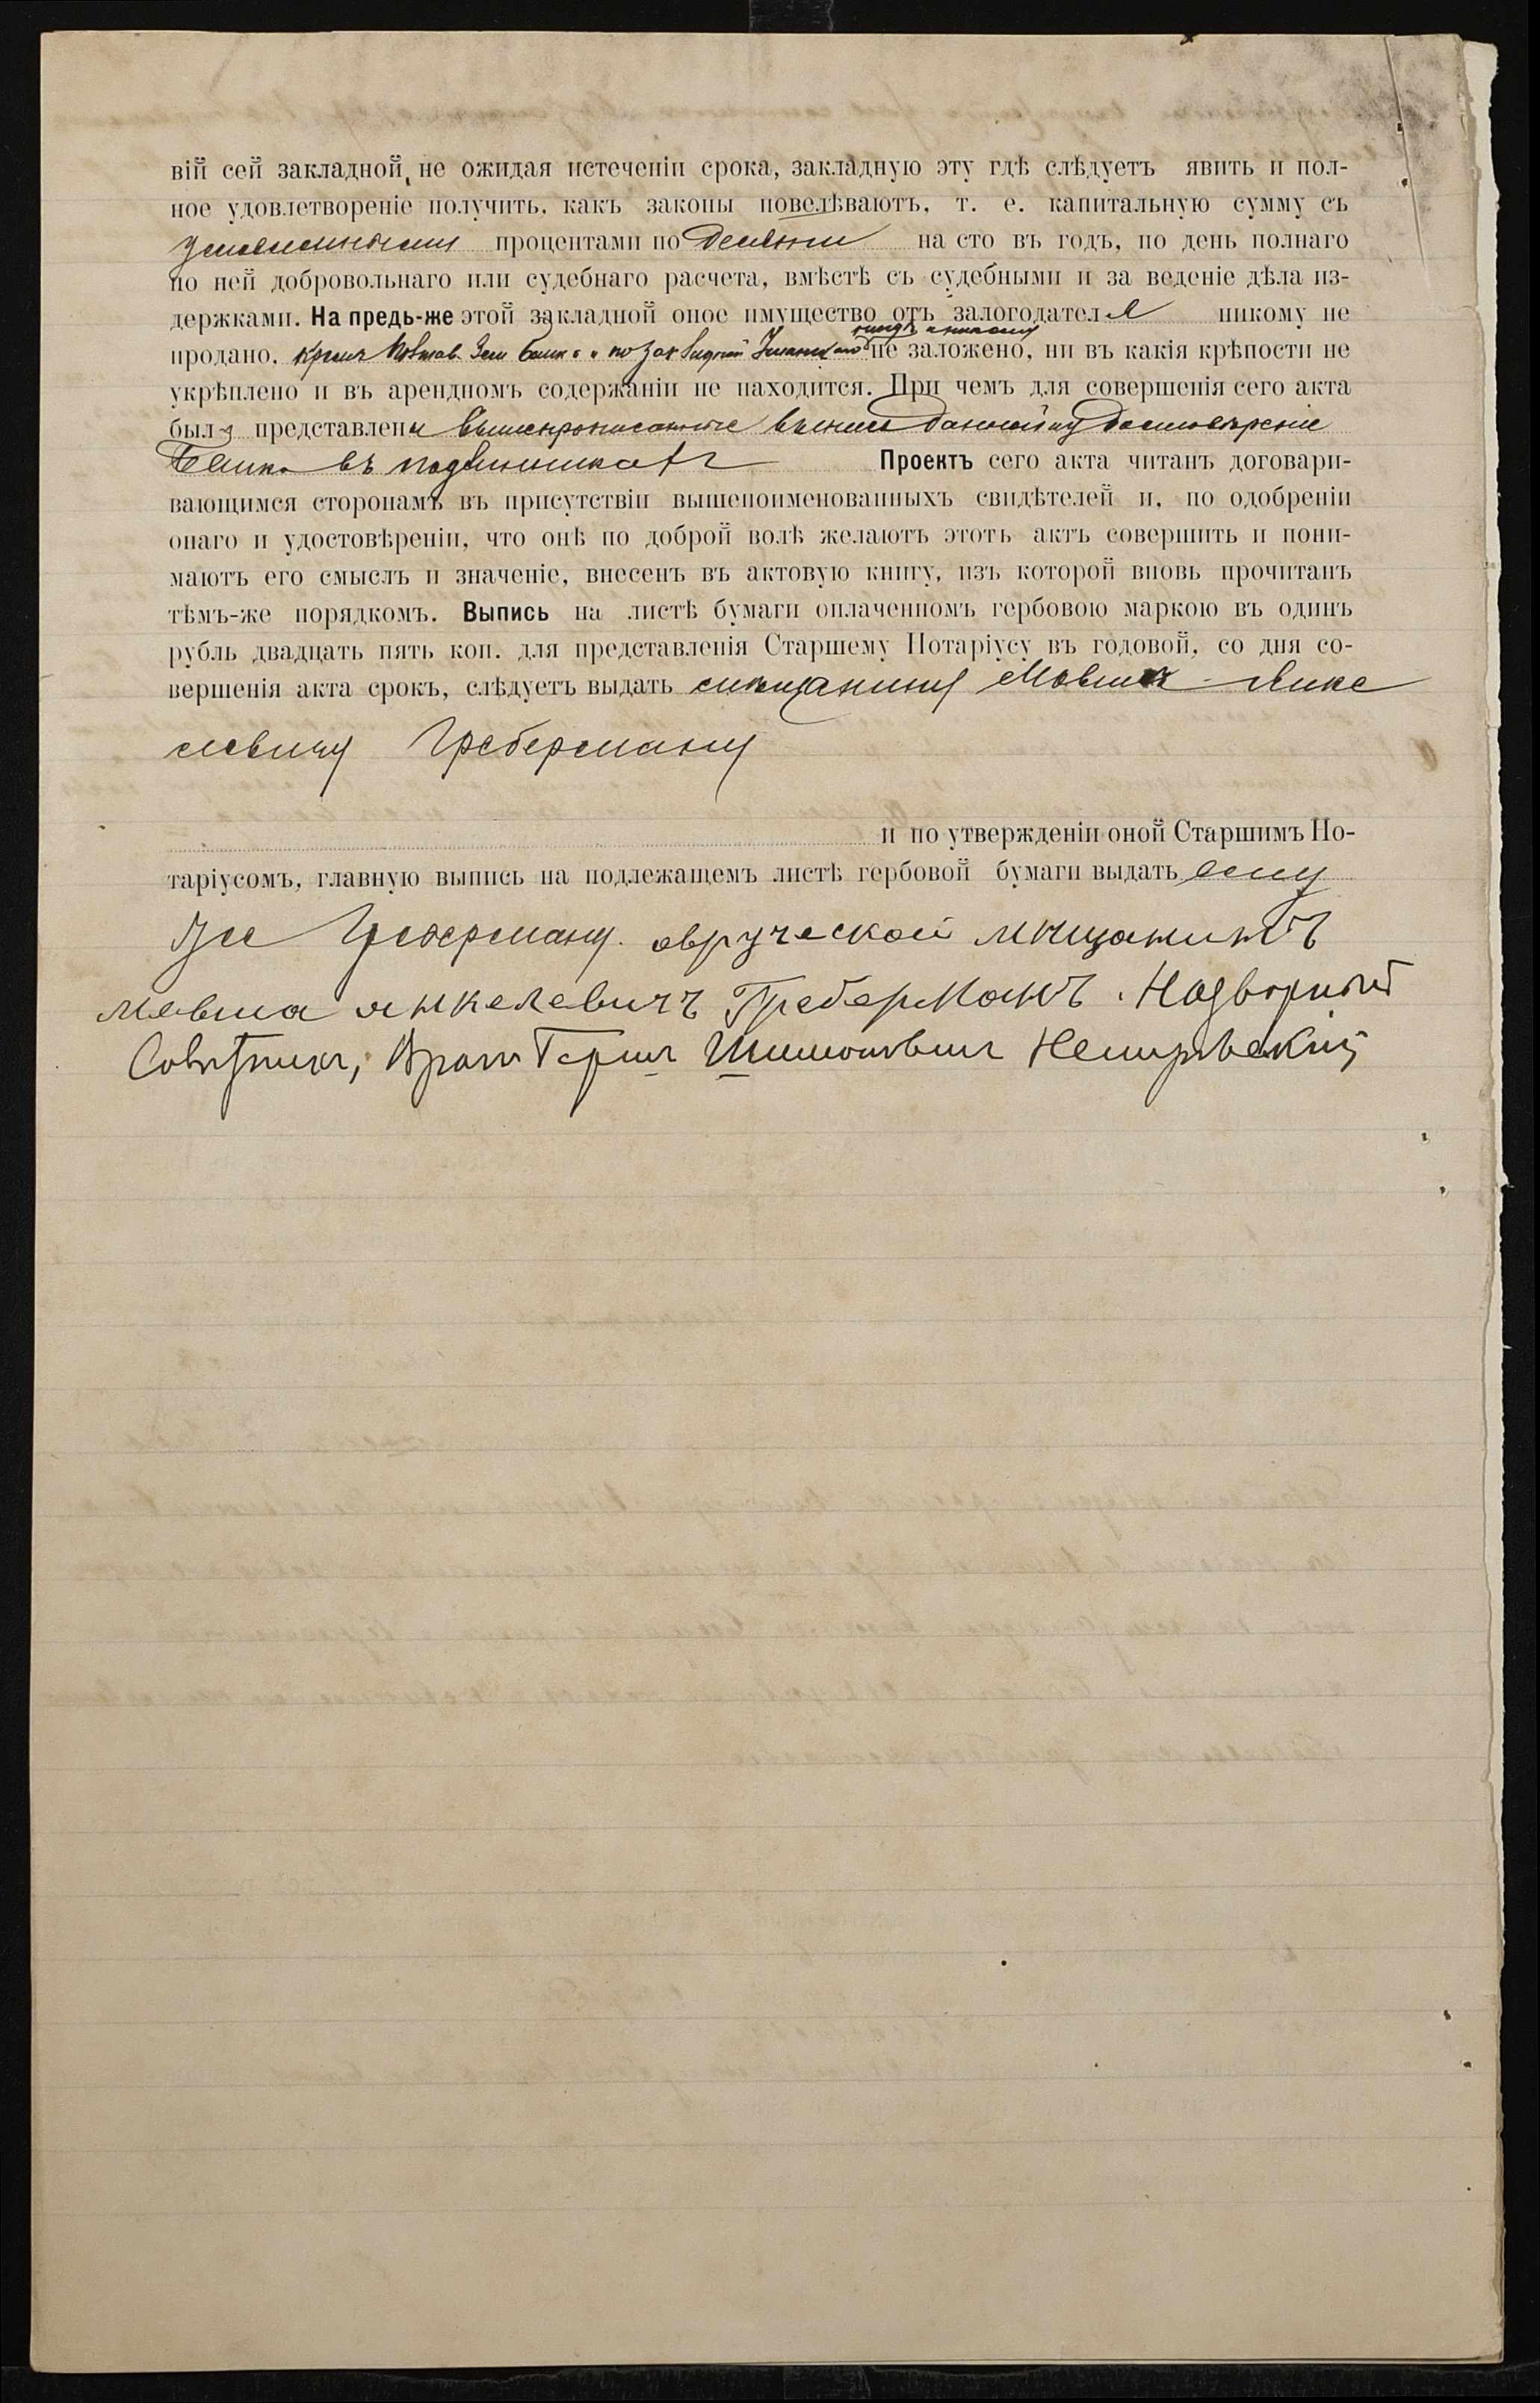 вій сей закладной, не ожидая истеченіи срока, закладную эту гдѣ слѣдуетъ явить и пол-
ное удовлетвореніе получить, какъ законы повелѣваютъ, т. е. капитальную сумму съ
условленными процентами по десяти на сто въ годъ, по день полнаго
по ней добровольнаго или судебнаго расчета, вмѣстѣ съ судебными и за веденіе дѣла из-
держками. На предь-же этой закладной оное имущество отъ залогодателя никому не
нигдѣ и никому
продано, кромѣ Полтав. Зем. Банка и по не заложено, ни въ какія крѣпости не
укрѣплено и въ арендномъ содержаніи не находится. При чемъ для совершенія сего акта
были представлены вышепрописанные выпись данной и удостовѣреніе
Банка въ подлинникахъ Проектъ сего акта читанъ договари-
вающимся сторонамъ въ присутствіи вышепоименованныхъ свидѣтелей и, по одобреніи
онаго и удостовѣреніи, что онѣ по доброй волѣ желаютъ этотъ актъ совершить и пони-
маютъ его смыслъ и значеніе, внесенъ въ актовую книгу, изъ которой вновь прочитанъ
тѣмъ-же порядкомъ. Выпись на листѣ бумаги оплаченномъ гербовою маркою въ одинъ
рубль двадцать пять коп. для представленія Старшему Нотаріусу въ годовой, со дня со-
вершенія акта срокъ, слѣдуетъ выдать мѣщанину Мовше Янке
левичу Греберману
и по утвержденіи оной Старшимъ Но-
таріусомъ, главную выпись на подлежащемъ листѣ гербовой бумаги выдать ему
же Греберману. овручской мѣщанинъ
мовша янкелевичъ Греберманъ. Надворный
Совѣтникъ, Врачъ Гершъ Шимоновичъ Немировскій